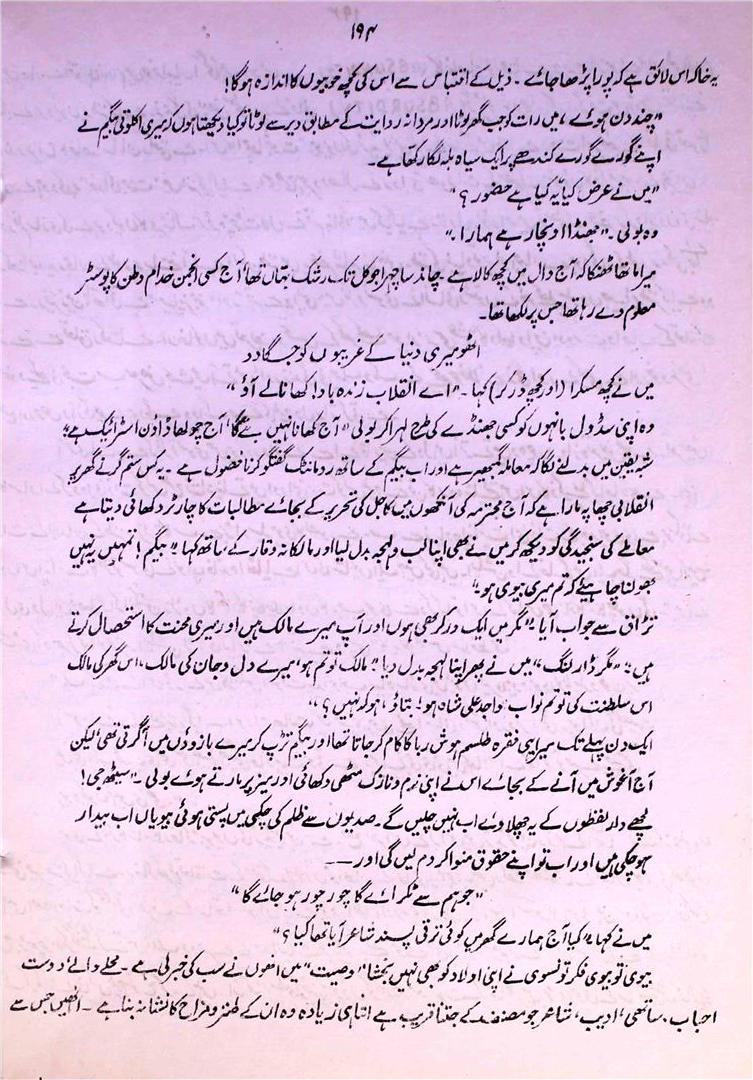 ۱۹۴
یہ خاکہ اس لائق ہے کہ پورا پڑھا جائے ۔ ذیل کے اقتباس سے اس کی کچھ خوبیوں کا اندازہ ہوگا!
"چند دن ہوئے ، میں رات کو جب گھر لوٹا اور مردانہ روایت کے مطابق دیر سے لوٹا تو کیا دیکھتا ہوں کہ میری اکلوتی بیگم نے
اپنے گورے گورے کندھے پر ایک سیاہ بلہ لگا رکھا ہے ۔
"میں نے عرض کیا یہ کیا ہے حضور ؟"
وہ بولی ۔ "جھنڈا اونچا رہے ہمارا ۔"
میرا ماتھا ٹھنکا کہ آج دال میں کچھ کالا ہے ۔ چاند سا چہرا جو کل تک رشک بتاں تھا آج کسی انجمن خدام وطن کا پوسٹر
معلوم دے رہا تھا جس پر لکھا تھا ۔
اٹھو میری دنیا کے غریبوں کو جگا دو
میں نے کچھ مسکرا (اور کچھ ڈر کر) کہا ۔ "اے انقلاب زندہ باد! کھانا لے آؤ "
وہ اپنی سڈول بانہوں کو کسی جھنڈے کی طرح لہرا کر بولی "آج کھانا نہیں بنے گا' آج چولھا ڈاؤن اسٹرائیک ہے"
شدہ یقین میں بدلنے لگا کہ معاملہ گمبھیر ہے اور اب بیگم کے ساتھ رومانٹک گفتگو کرنا فضول ہے ۔ یہ کس ستم گر نے گھر پر
انقلابی چھاپہ مارا ہے کہ آج محترمہ کی آنکھوں میں کاجل کی تحریر کے بجائے مطالبات کا چارٹر دکھائی دیتا ہے
معاملے کی سنجیدگی کو دیکھ کر میں نے بھی اپنا لب و لہجہ بدل لیا اور مالکانہ وقار کے ساتھ کہا "بیگم ! تمہیں یہ نہیں
بھولنا چاہیئے کہ تم میری بیوی ہو ۔"
تڑاق سے جواب آیا "مگر میں ایک ورکر بھی ہوں اور آپ میرے مالک ہیں اور میری محنت کا استحصال کرتے
ہیں ۔" "مگر ڈارلنگ" میں نے پھر اپنا لہجہ بدل دیا "مالک تو تم ہو' میرے دل و جان کی مالک ، اس گھر کی مالک
اس سلطنت کی تو تم نواب واجد علی شاہ ہو! بتاؤ ، ہو کہ نہیں ؟"
ایک دن پہلے تک میرا یہی فقرہ طلسم ہوش ربا کا کام کر جاتا تھا اور بیگم تڑپ کر میرے بازوؤں میں آ گرتی تھی' لیکن
آج آغوش میں آنے کے بجائے اس نے اپنی نرم و نازک مٹھی دکھائی اور میز پر مارتے ہوئے بولی ۔ "سیٹھ جی!
لچھے دار لفظوں کے یہ چھلاوے اب نہیں چلیں گے ۔ صدیوں سے ظلم کی چکی میں پستی ہوئی بیویاں اب بیدار
ہو چکی ہیں اور اب تو اپنے حقوق منوا کر دم لیں گی اور ۔۔
"جو ہم سے ٹکرائے گا چور چور ہو جائے گا"
میں نے کہا "کیا آج ہمارے گھر میں کوئی ترقی پسند شاعر آیا تھا کیا ؟"
بیوی تو بیوی فکر تونسوی نے اپنی اولاد کو بھی نہیں بخشا "وصیت" میں انھوں نے سب کی خبر لی ہے ۔ محلے والے' دوست
احباب ، ساتھی' ادیب ، شاعر جو مصنف کے جتنا قریب ہے اتنا ہی زیادہ وہ ان کے طنز و مزاح کا نشانہ بنا ہے ۔ انھیں جس سے